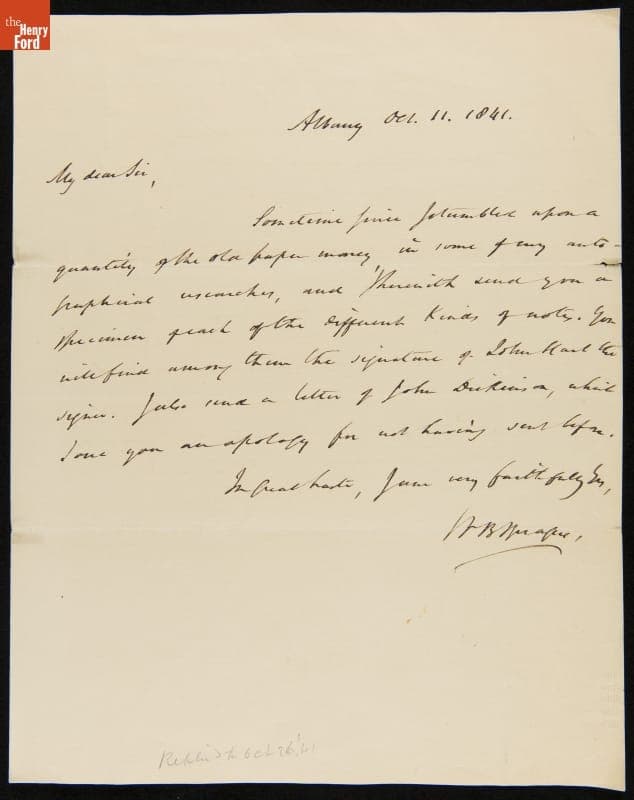 the
Henry
Ford
Albany Oct. 11. 1841.
My dear Sir,
Sometime since I stumbled upon a
quantity of the old paper money, in some of my auto-
graphical researches, and I herewith send you a
specimen of each of the different kinds of notes. You
will find among them the signature of John Hart the
signer. I also send a letter of John Dickinson, which
I owe you an apology for not having sent before.
In great haste, I am very faithfully Yrs,
W B Sprague,
Oct 26 '41